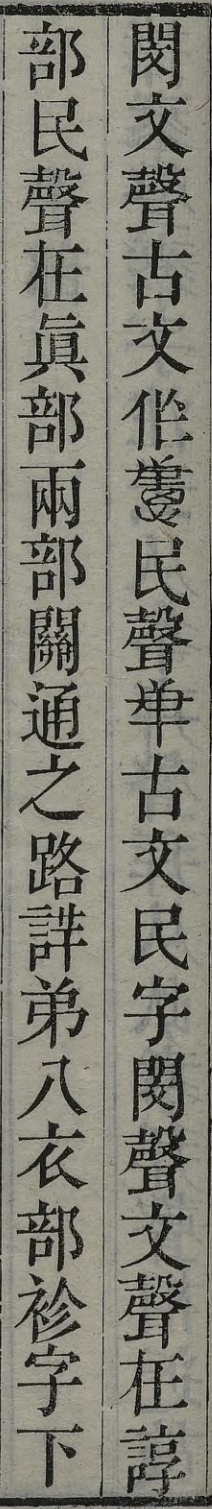 閔文聲古文作𢛳民聲𢆉古文民字閔聲文聲在諄
部民聲在眞部兩部關通之路詳弟八衣部袗字下